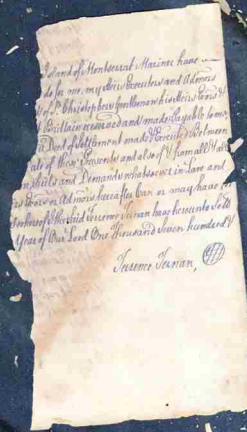 Island of Montserrat Mariner have
do for me, my Heirs Executors and Admors
of St. Christophers Gentleman his Heirs Exors &
Brittain received and made Payable to me,
Deed of Settlement made & Executed Between
Date of these Presents and also of & from all &
and Demands whatsoever in Law and
Exors or Admors hereafter Can or may have
whereof I the said Terence Ternan have hereunto Set
Year of Our Lord One Thousand Seven hundred &
Terence Ternan,